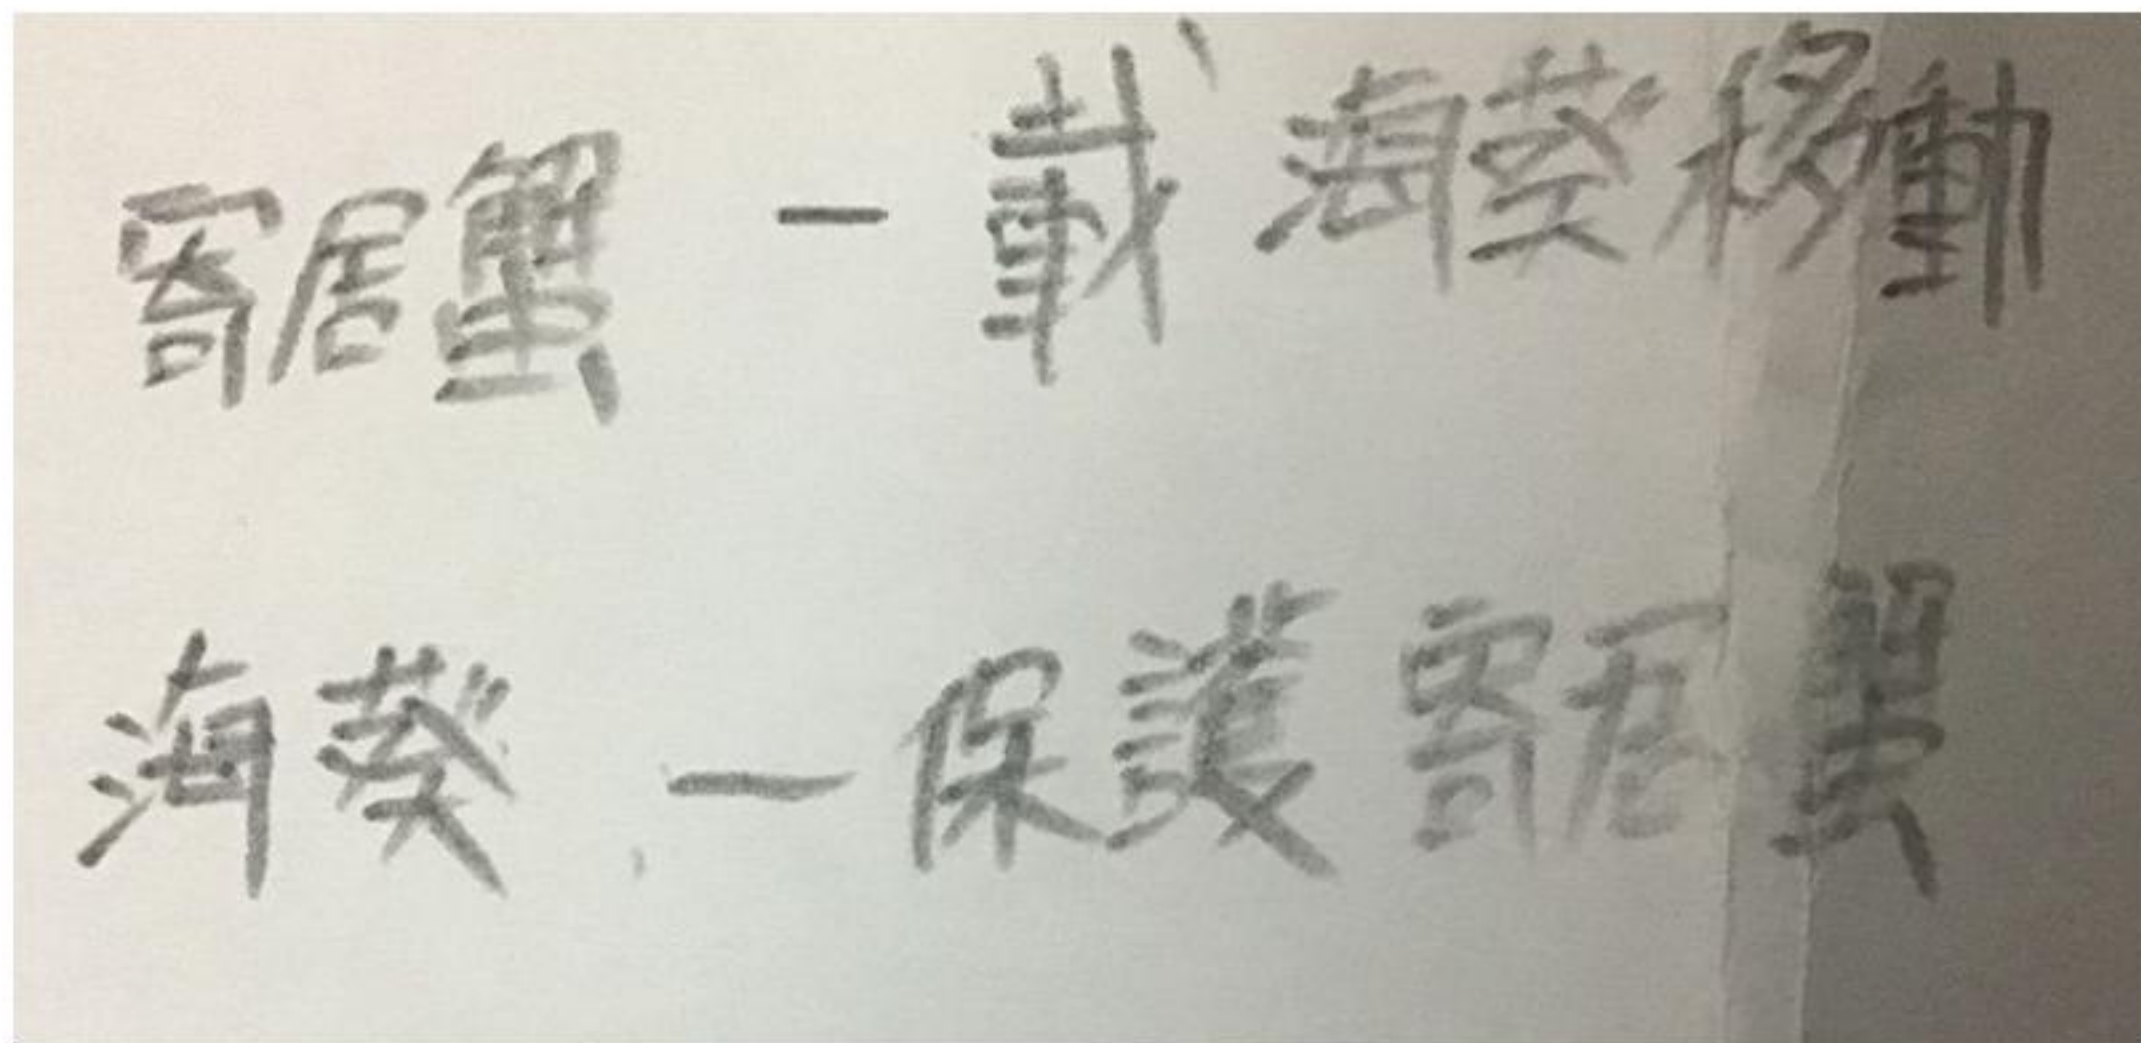 寄居蟹 - 載海葵移動
海葵 - 保護寄居蟹